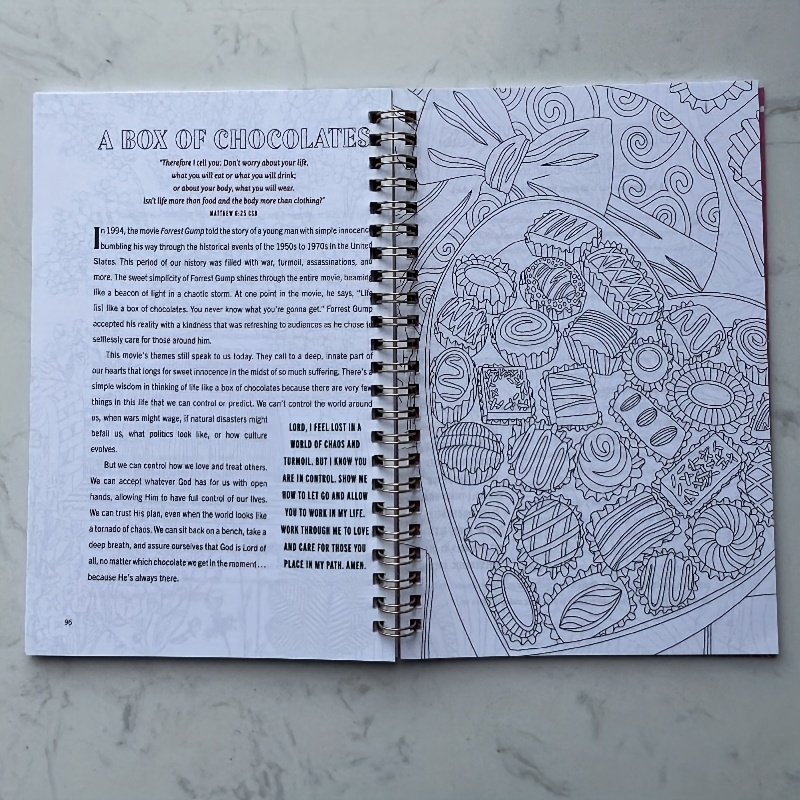 A BOX OF CHOCOLATES
"Therefore I tell you: Don't worry about your life,
what you will eat or what you will drink;
or about your body, what you will wear.
Isn't life more than food and the body more than clothing?"
MATTHEW 6:25 CSB
In 1994, the movie Forrest Gump told the story of a young man with simple innocence
bumbling his way through the historical events of the 1950s to 1970s in the United
States. This period of our history was filled with war, turmoil, assassinations, and
more. The sweet simplicity of Forrest Gump shines through the entire movie, beaming
like a beacon of light in a chaotic storm. At one point in the movie, he says, "Life
[is] like a box of chocolates. You never know what you're gonna get." Forrest Gump
accepted his reality with a kindness that was refreshing to audiences as he chose to
selflessly care for those around him.
This movie's themes still speak to us today. They call to a deep, innate part of
our hearts that longs for sweet innocence in the midst of so much suffering. There's a
simple wisdom in thinking of life like a box of chocolates because there are very few
things in this life that we can control or predict. We can't control the world around
us, when wars might wage, if natural disasters might
befall us, what politics look like, or how culture
evolves.
But we can control how we love and treat others.
We can accept whatever God has for us with open
hands, allowing Him to have full control of our lives.
We can trust His plan, even when the world looks like
a tornado of chaos. We can sit back on a bench, take a
deep breath, and assure ourselves that God is Lord of
all, no matter which chocolate we get in the moment...
because He's always there.
LORD, I FEEL LOST IN A
WORLD OF CHAOS AND
TURMOIL. BUT I KNOW YOU
ARE IN CONTROL. SHOW ME
HOW TO LET GO AND ALLOW
YOU TO WORK IN MY LIFE.
WORK THROUGH ME TO LOVE
AND CARE FOR THOSE YOU
PLACE IN MY PATH. AMEN.
96